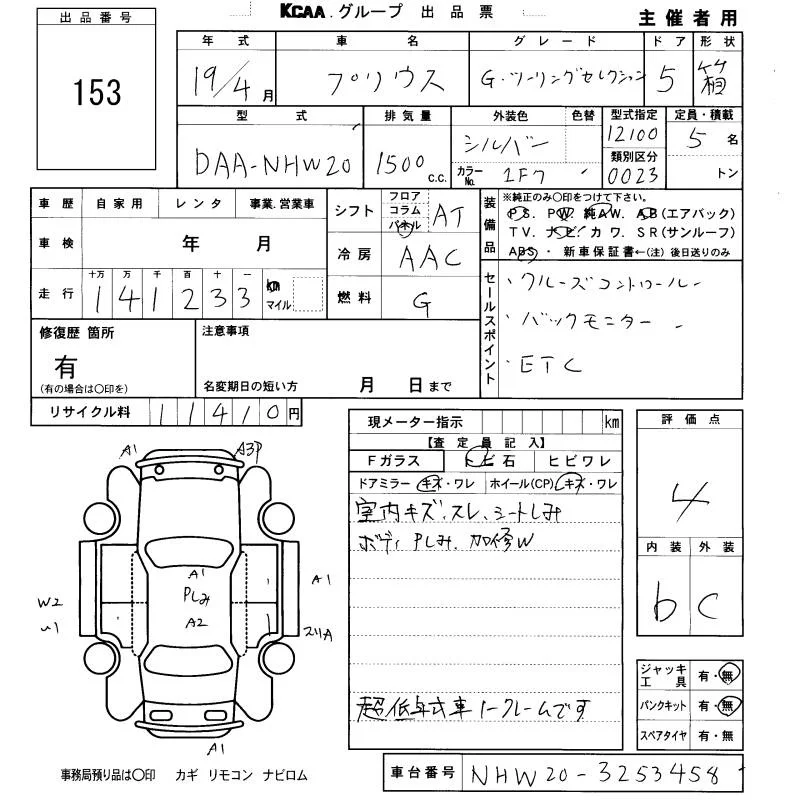 KCAA.グループ 出品票
主催者用
出品番号
153
年式 車名 グレード ドア 形状
19/4月 プリウス G・ツーリングセレクション 5 箱
型式 排気量 外装色 色替 型式指定 定員・積載
DAA-NHW20 1500c.c. シルバー 12100 5名
カラーNo. 1F7 類別区分 0023 トン
車歴 自家用 レンタ 事業.営業車
シフト フロア コラム パネル AT
装備品 ※純正のみ〇印をつけて下さい。
PS. PW. 純AW. AB(エアバック)
TV. ナビ. カワ. SR(サンルーフ)
ABS・ 新車保証書←(注) 後日送りのみ
車検 年 月
冷房 AAC
走行 十万 万 千 百 十 一
141233 km マイル
燃料 G
セールスポイント
・クルーズコントロール
・バックモニター
・ETC
修復歴 箇所
有
(有の場合は〇印を)
注意事項
名変期日の短い方 月 日まで
リサイクル料 11410円
現メーター指示 km
【査定員記入】
Fガラス トビ石 ヒビワレ
ドアミラー キズ・ワレ ホイール(CP) キズ・ワレ
室内キズ、スレ、シートしみ
ボディPしみ、加修W
超低年式車ノークレームです
評価点
4
内装 外装
b C
A1 A3P
A1
Pしみ
A2
A1
W2
A1
ジャッキ工具 有・無
パンクキット 有・無
スペアタイヤ 有・無
事務局預り品は〇印 カギ リモコン ナビロム
車台番号 NHW20-3253458